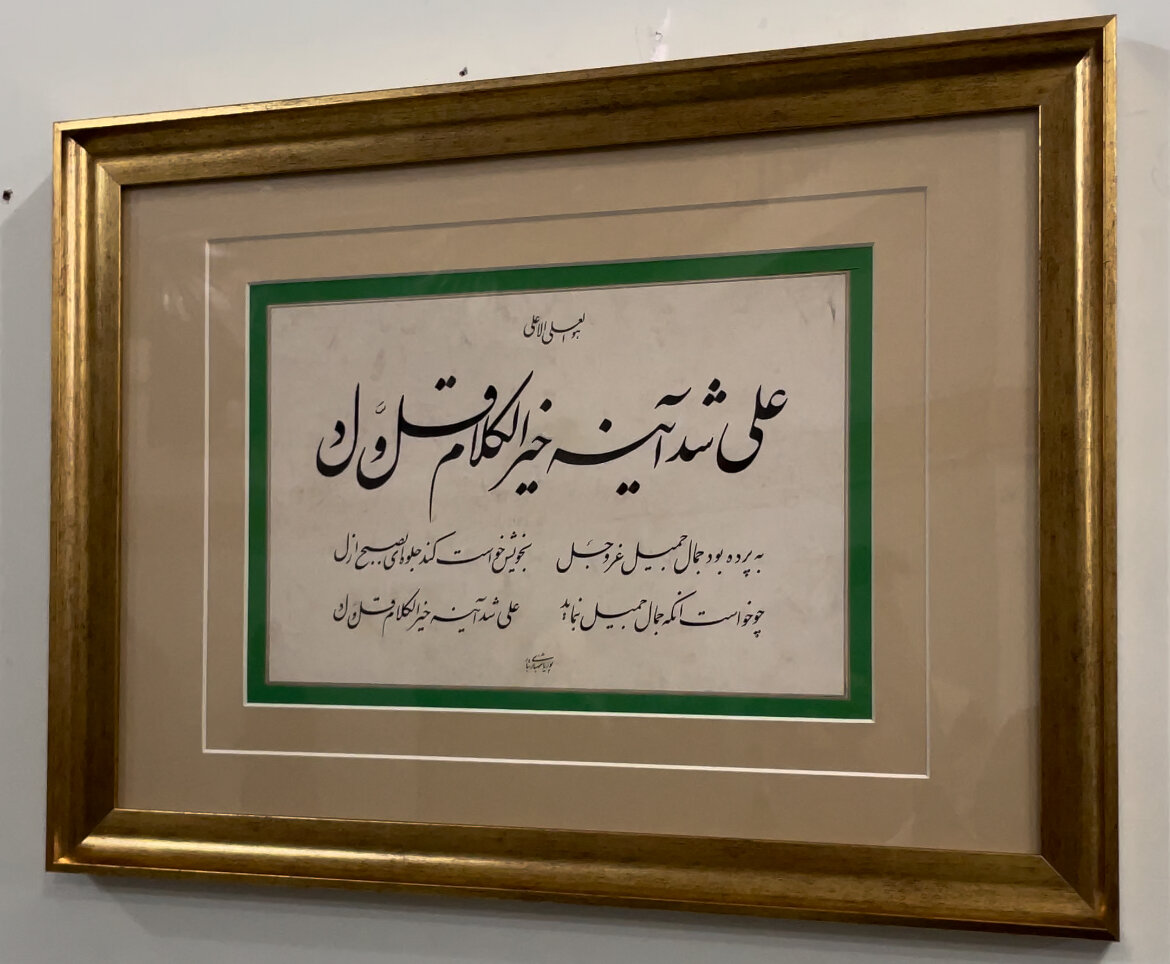 هو العلی الاعلی
علی شد آینه خیر الکلام قل و دل
به پرده بود جمال جمیل عز و جل بخویش خواست کند جلوه‌ای بصبح ازل
چو خواست آنکه جمال جمیل بنماید علی شد آینه خیر الکلام قل و دل